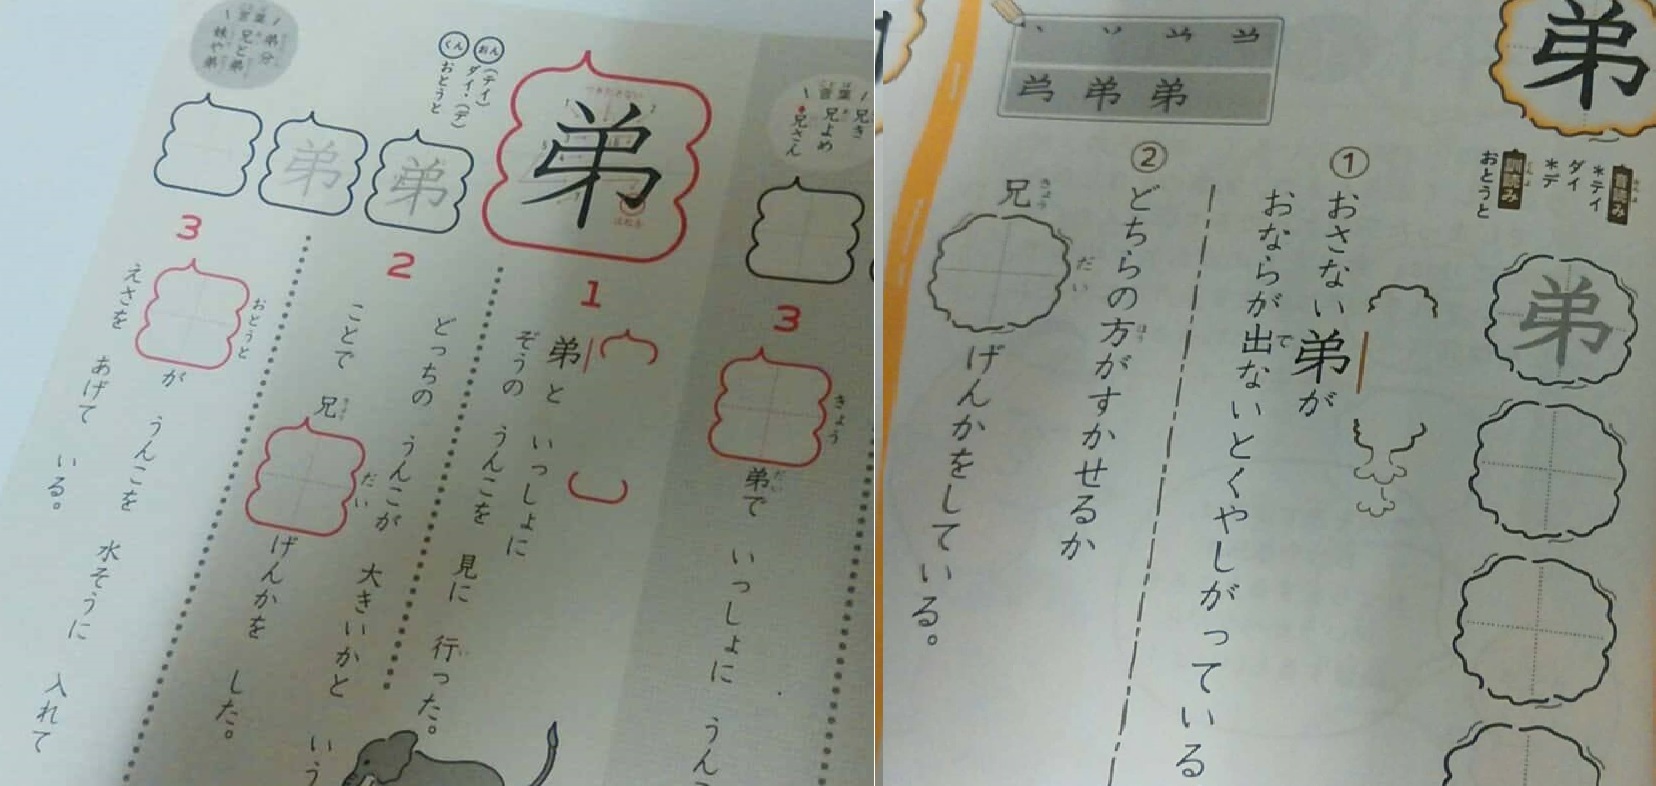 言葉
兄き
兄よめ
兄さん
3
きょう
弟で いっしょに うん
だい
弟
おん
(テイ)
ダイ・(デ)
くん
おとうと
1
弟と いっしょに
ぞうの うんこを 見に 行った。
2
どっちの うんこが 大きいかと いう
ことで 兄 げんかを した。
だい
3
おとうと
が うんこを 水そうに 入れて
えさを あげて いる。
弟
弟
言葉
弟分
兄と弟
妹や弟
弟
音読み
*テイ
ダイ
*デ
訓読み
おとうと
弟
①
おさない弟が
おならが出ないとくやしがっている
で
②
どちらの方がすかせるか
ほう
兄 げんかをしている。
きょう
だい
弟 弟